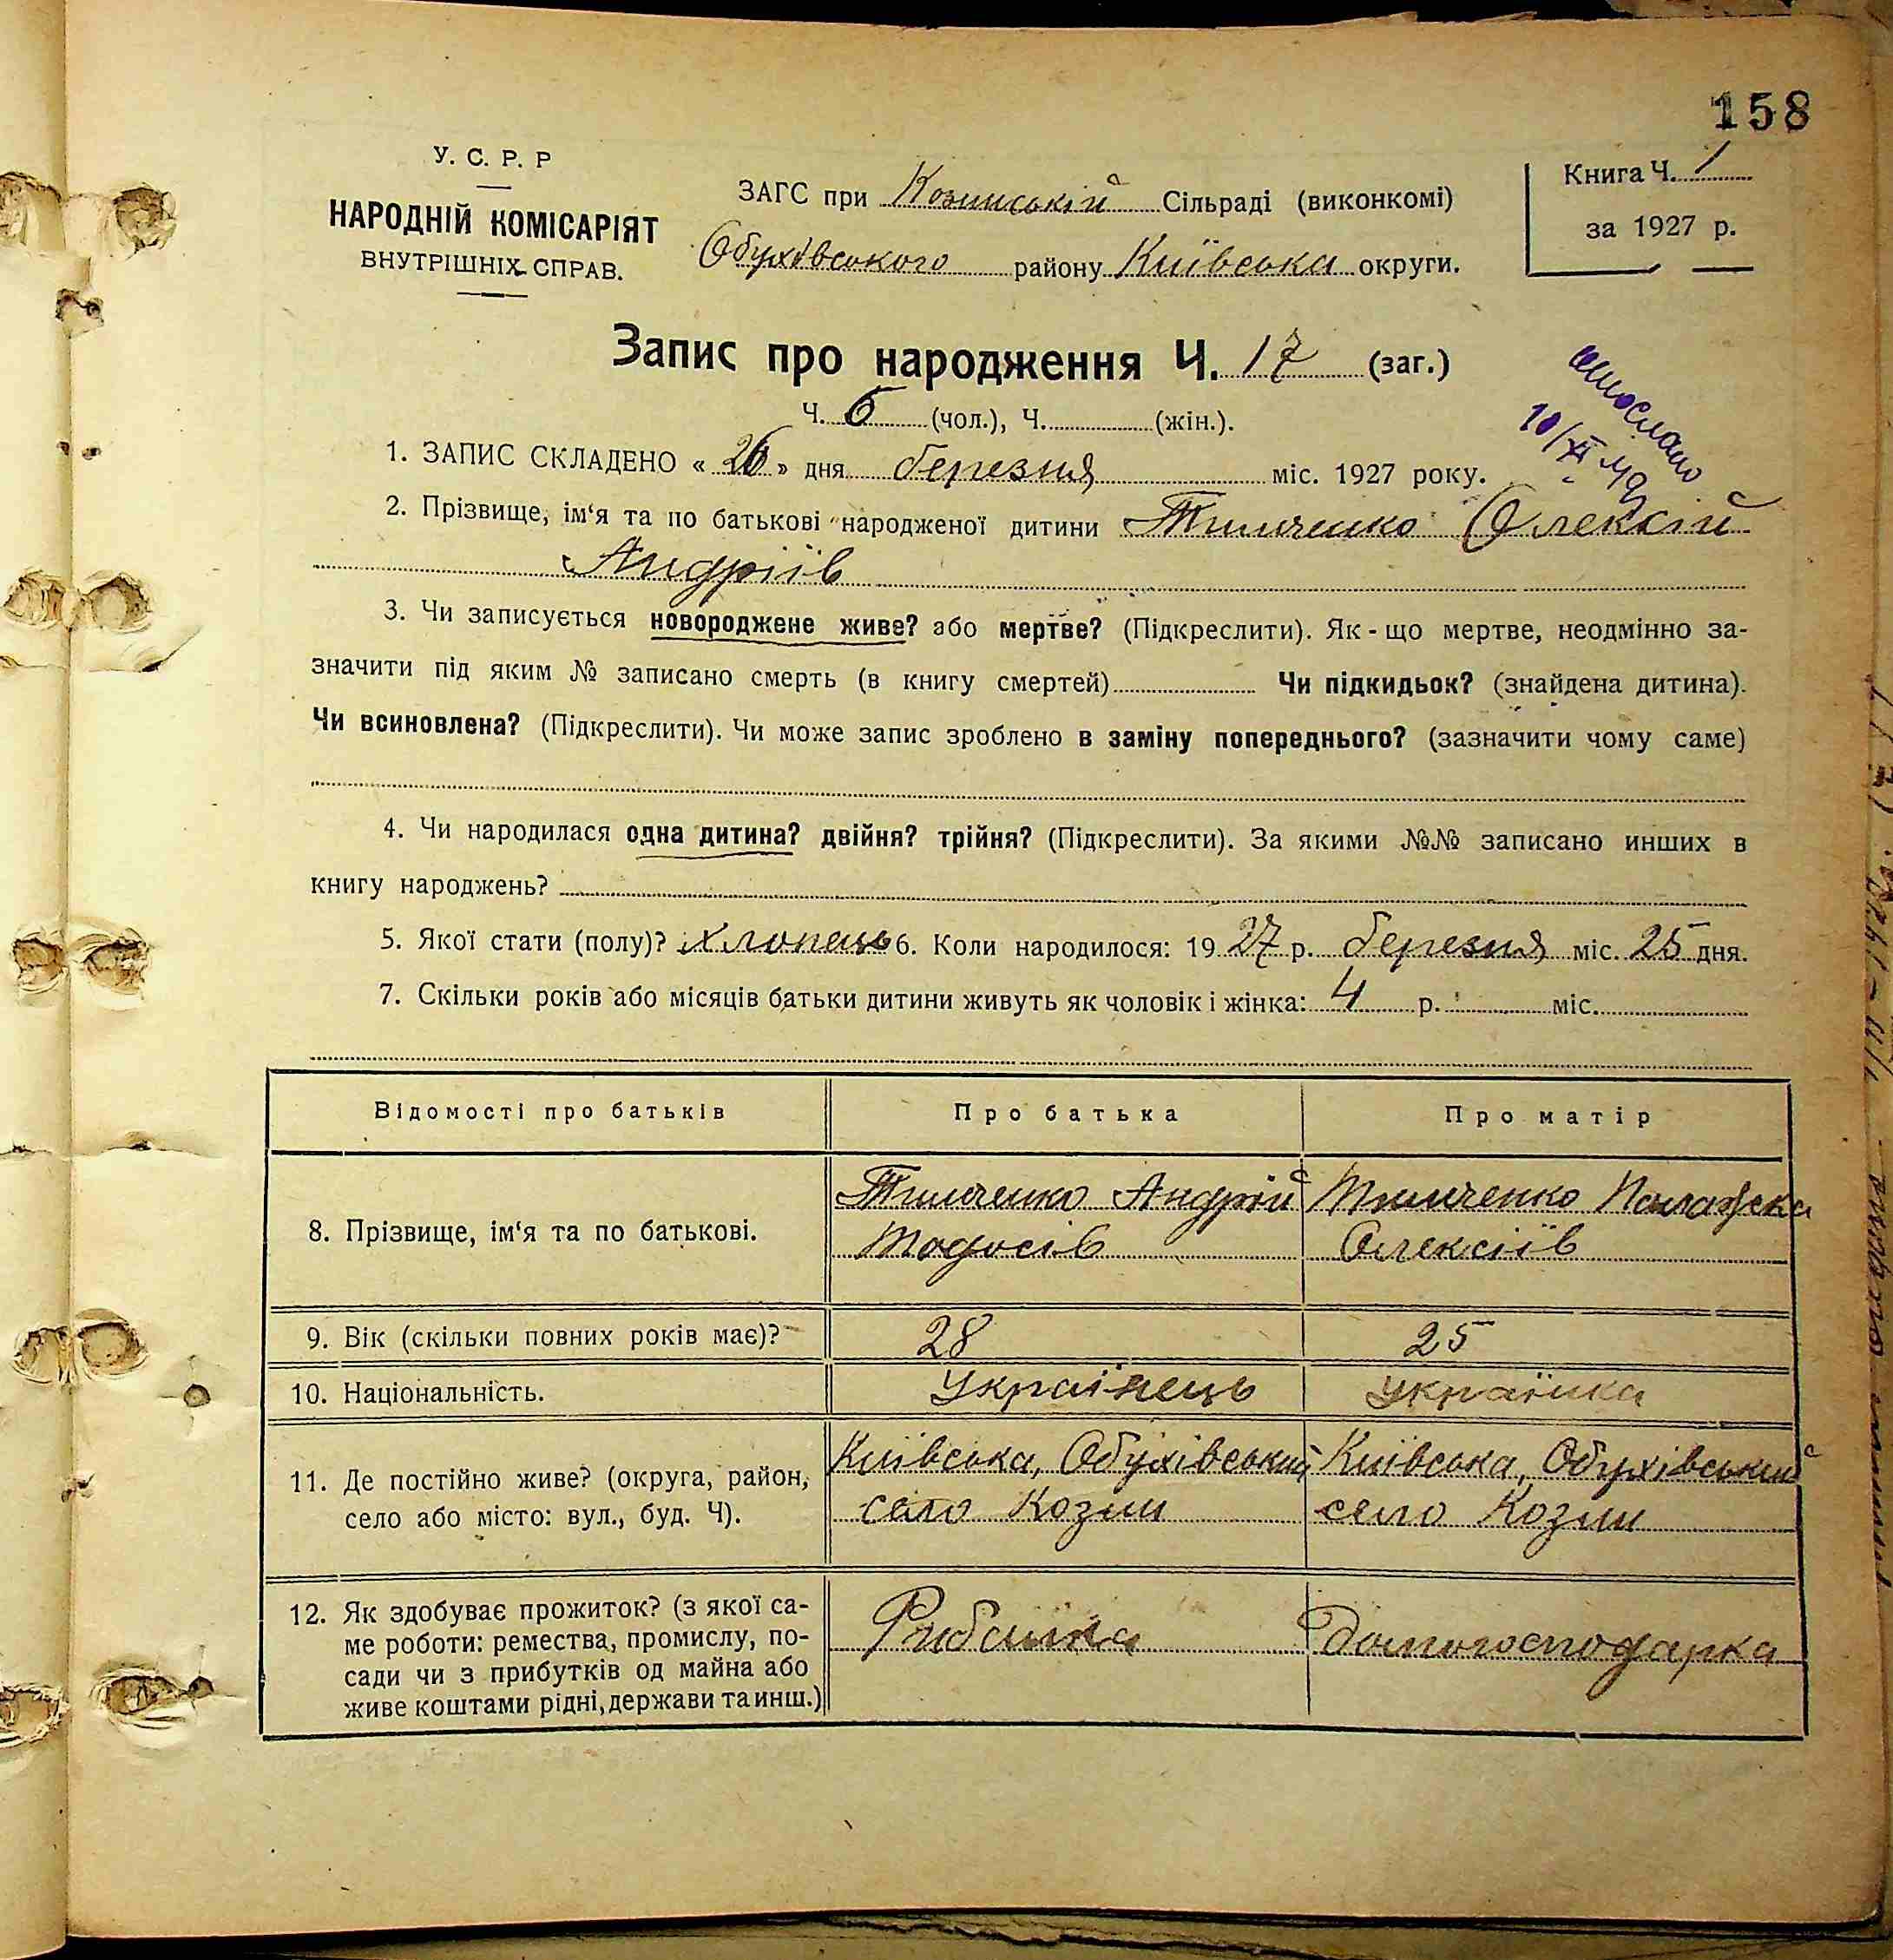 158
У. С. Р. Р
НАРОДНІЙ КОМІСАРІЯТ
ВНУТРІШНІХ СПРАВ.
ЗАГС при Козинській Сільраді (виконкомі)
Обухівського району Київська округи.
Книга Ч. 1
за 1927 р.
Запис про народження Ч. 17 (заг.)
Ч. 6 (чол.), Ч. (жін.).
10/XI 49
1. ЗАПИС СКЛАДЕНО « 26 » дня березня міс. 1927 року.
2. Прізвище, ім‘я та по батькові народженої дитини Тимченко Олексій
Андріїв
3. Чи записується новороджене живе? або мертве? (Підкреслити). Як - що мертве, неодмінно за-
значити під яким № записано смерть (в книгу смертей) Чи підкидьок? (знайдена дитина).
Чи всиновлена? (Підкреслити). Чи може запис зроблено в заміну попереднього? (зазначити чому саме)
4. Чи народилася одна дитина? двійня? трійня? (Підкреслити). За якими №№ записано инших в
книгу народжень?
5. Якої стати (полу)? хлопець 6. Коли народилося: 19 27 р. березня міс. 25 дня.
7. Скільки років або місяців батьки дитини живуть як чоловік і жінка: 4 р. міс.
Відомості про батьків Про батька Про матір
8. Прізвище, ім‘я та по батькові.
Тимченко Андрій
Тодосів
Тимченко
Олексіїв
9. Вік (скільки повних років має)? 28 25
10. Національність. Українець Українка
11. Де постійно живе? (округа, район,
село або місто: вул., буд. Ч).
Київська, Обухівський
село Козин
Київська, Обухівський
село Козин
12. Як здобуває прожиток? (з якої са-
ме роботи: ремества, промислу, по-
сади чи з прибутків од майна або
живе коштами рідні, держави та инш.)
Рибалка
Домогосподарка